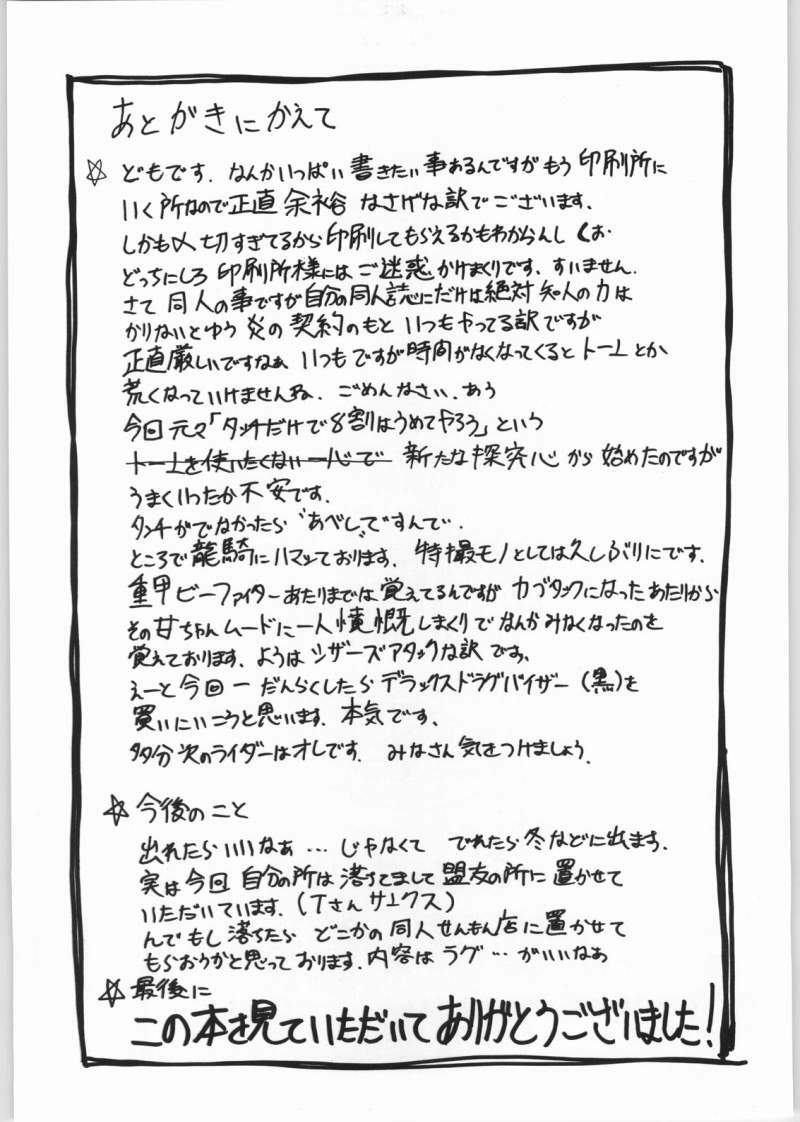 あとがきにかえて
☆ どもです. なんかいっぱい書きたい事あるんですがもう印刷所に
いく所なので正直余裕なさげな訳でございます.
しかも〆切すぎてるから印刷してもらえるかもわからんし くぉ.
どっちにしろ印刷所様にはご迷惑かけまくりです. すいません.
さて同人の事ですが自分の同人誌にだけは絶対知人の力は
かりないとゆう炎の契約のもといつもやってる訳ですが
正直厳しいですなぁ いつもですが時間がなくなってくるとトーンとか
荒くなっていけませんね. ごめんなさい. あう
今回元々「タッチだけで8割はうめてやろう」という
トーンを使いたくない一心で 新たな探究心から始めたのですが
うまくいったか不安です.
タッチがでなかったら"あべし"ですんで.
ところで龍騎にハマッております. 特撮モノとしては久しぶりにです.
重甲ビーファイターあたりまでは覚えてるんですがカブタックになったあたりから
その女ちゃんムードに一人憤慨しまくりでなんかみなくなったのを
覚えております. ようはシザーズアタックな訳ですよ.
えーと今回一だんらくしたらデラックスドラグバイザー(黒)を
買いにいこうと思います. 本気です.
多分次のライダーはオレです. みなさん気をつけましょう.
☆ 今後のこと
出れたらいいなぁ…じゃなくて でれたら冬などに出ます.
実は今回自分の所は落ちてまして盟友の所に置かせて
いただいています. (Tさんサンクス)
んでもし落ちたらどこかの同人せんもん店に置かせて
もらおうかと思っております. 内容はラグ…がいいなぁ
☆ 最後に
この本を見ていただいてありがとうございました!